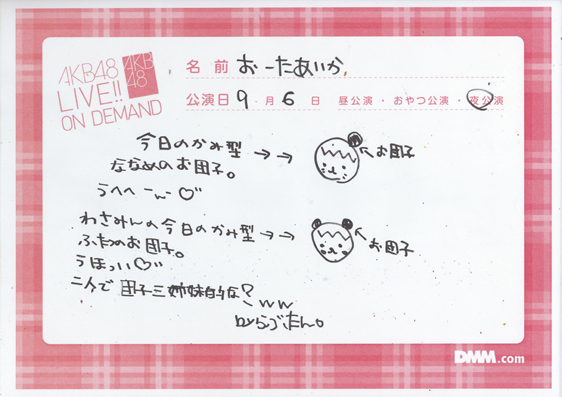 AKB48
LIVE!!
ON DEMAND
AKB
48
名前 おーたあいか
公演日 9 月 6 日 昼公演・おやつ公演・夜公演
今日のかみ型 →→ ←お団子
ななめのお団子。
うへへ ー。ー ♡
わさみんの今日のかみ型 →→ ←お団子
ふたつのお団子。
うほっい♡
二人で団子三姉妹的な？ww
らぶたん。
DMM.com